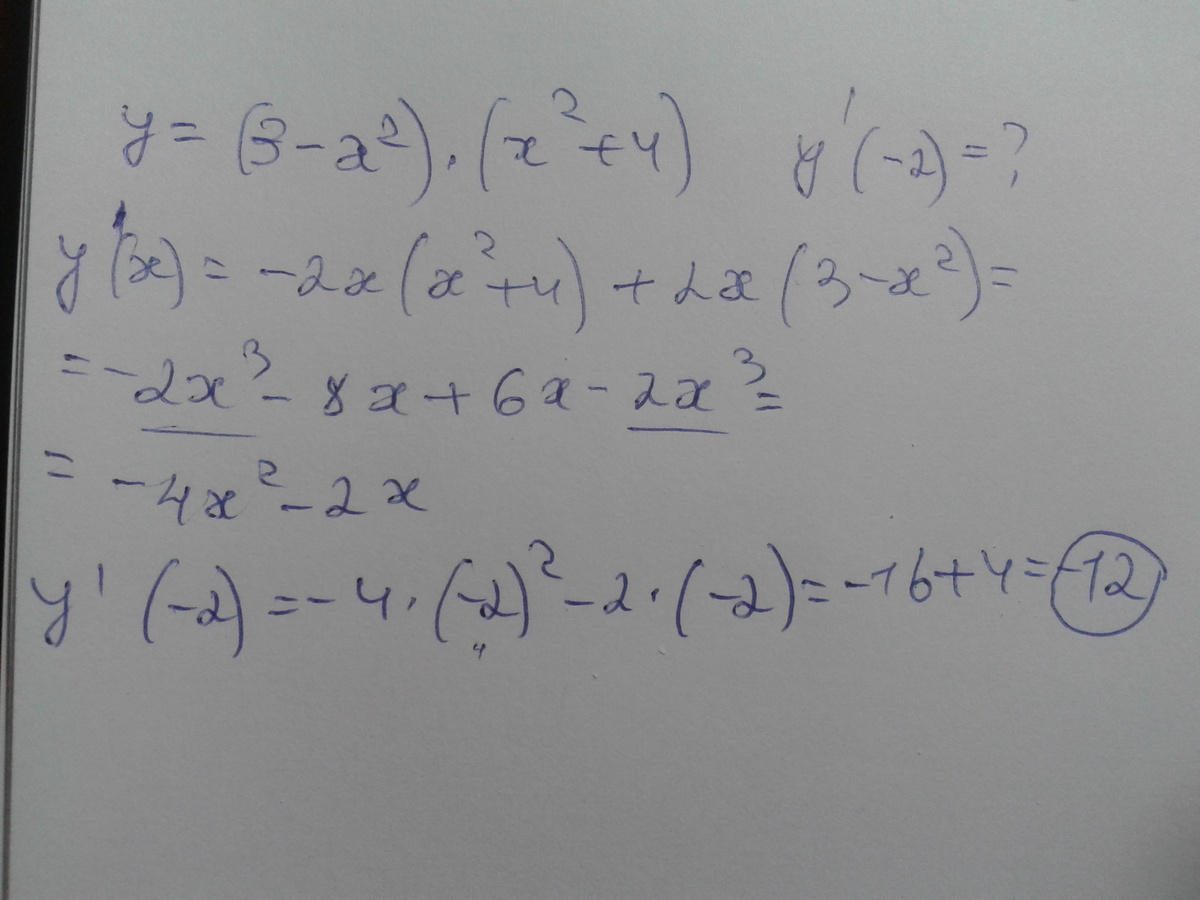 y = (3 - x²) · (x² + 4) y'(-2) = ?
y'(x) = -2x(x² + 4) + 2x(3 - x²) =
= -2x³ - 8x + 6x - 2x³ =
= -4x² - 2x
y'(-2) = -4 · (-2)² - 2 · (-2) = -16 + 4 = -12
4